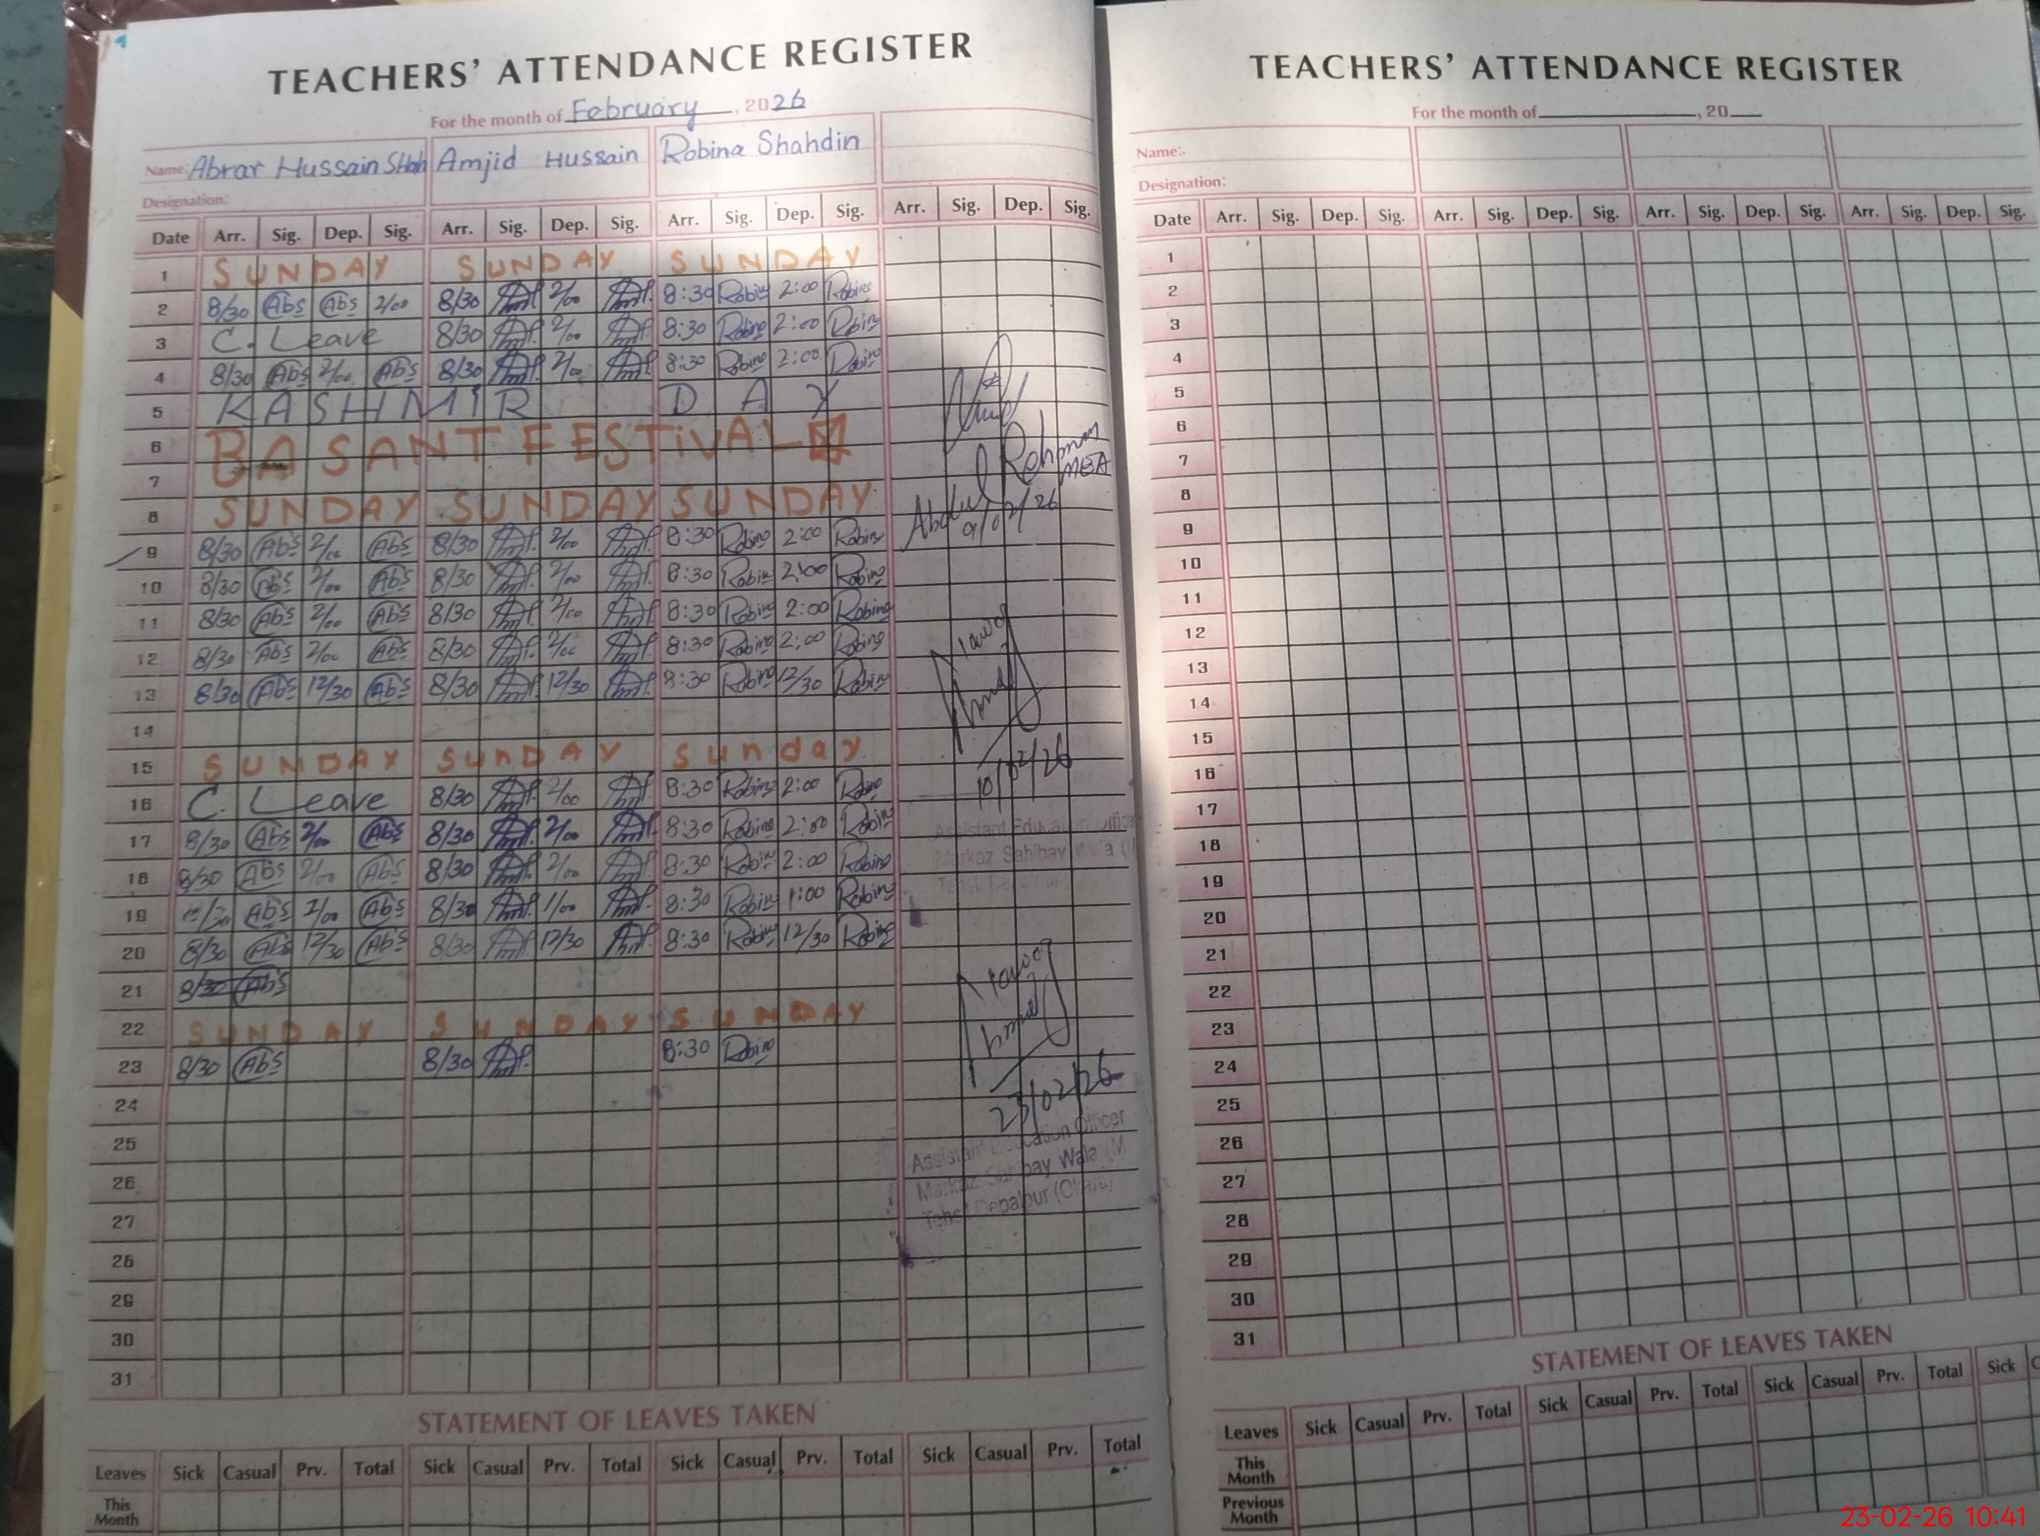 TEACHERS' ATTENDANCE REGISTER
For the month of February, 2026
Name: Abrar Hussain Shah Amjid Hussain Robina Shahdin
Designation:
Date Arr. Sig. Dep. Sig. Arr. Sig. Dep. Sig. Arr. Sig. Dep. Sig. Arr. Sig. Dep. Sig.
1 SUNDAY SUNDAY SUNDAY
2 8/30 Abs Abs 2/00 8/30 2/00 8:30 Robina 2:00 Robina
3 C. Leave 8/30 2/00 8:30 Robina 2:00 Robina
4 8/30 Abs 2/00 Abs 8/30 2/00 8:30 Robina 2:00 Robina
5 KASHMIR DAY
6 BASANT FESTIVAL
7
8 SUNDAY SUNDAY SUNDAY
9 8/30 Abs 2/00 Abs 8/30 2/00 8:30 Robina 2:00 Robina
10 8/30 Abs 2/00 Abs 8/30 2/00 8:30 Robina 2:00 Robina
11 8/30 Abs 2/00 Abs 8/30 2/00 8:30 Robina 2:00 Robina
12 8/30 Abs 2/00 Abs 8/30 2/00 8:30 Robina 2:00 Robina
13 8/30 Abs 12/30 Abs 8/30 12/30 8:30 Robina 12/30 Robina
14
15 SUNDAY SUnDAY Sunday
16 C. Leave 8/30 2/00 8:30 Robina 2:00 Robina
17 8/30 Abs 2/00 Abs 8/30 2/00 8:30 Robina 2:00 Robina
18 8/30 Abs 2/00 Abs 8/30 2/00 8:30 Robina 2:00 Robina
19 Abs 1/00 Abs 8/30 1/00 8:30 Robina 1:00 Robina
20 8/30 Abs 12/30 Abs 8/30 12/30 8:30 Robina 12/30 Robina
21 8/30 Abs
22 SUNDAY SUNDAY SUNDAY
23 8/30 Abs 8/30 8:30 Robina
24
25
26
27
28
29
30
31
Abdul Rehman
MEA
9/02/26
10/02/26
Assistant Education Officer
Markaz Sahibay Wala (M
23/02/26
Assistant Education Officer
Markaz Sahibay Wala (M
Tehsil Depalpur (Okara)
STATEMENT OF LEAVES TAKEN
Leaves Sick Casual Prv. Total Sick Casual Prv. Total Sick Casual Prv. Total Sick Casual Prv. Total
This Month
TEACHERS' ATTENDANCE REGISTER
For the month of , 20
Name:
Designation:
Date Arr. Sig. Dep. Sig. Arr. Sig. Dep. Sig. Arr. Sig. Dep. Sig. Arr. Sig. Dep. Sig.
1
2
3
4
5
6
7
8
9
10
11
12
13
14
15
16
17
18
19
20
21
22
23
24
25
26
27
28
29
30
31
STATEMENT OF LEAVES TAKEN
Leaves Sick Casual Prv. Total Sick Casual Prv. Total Sick Casual Prv. Total Sick
This Month
Previous Month
23-02-26 10:41